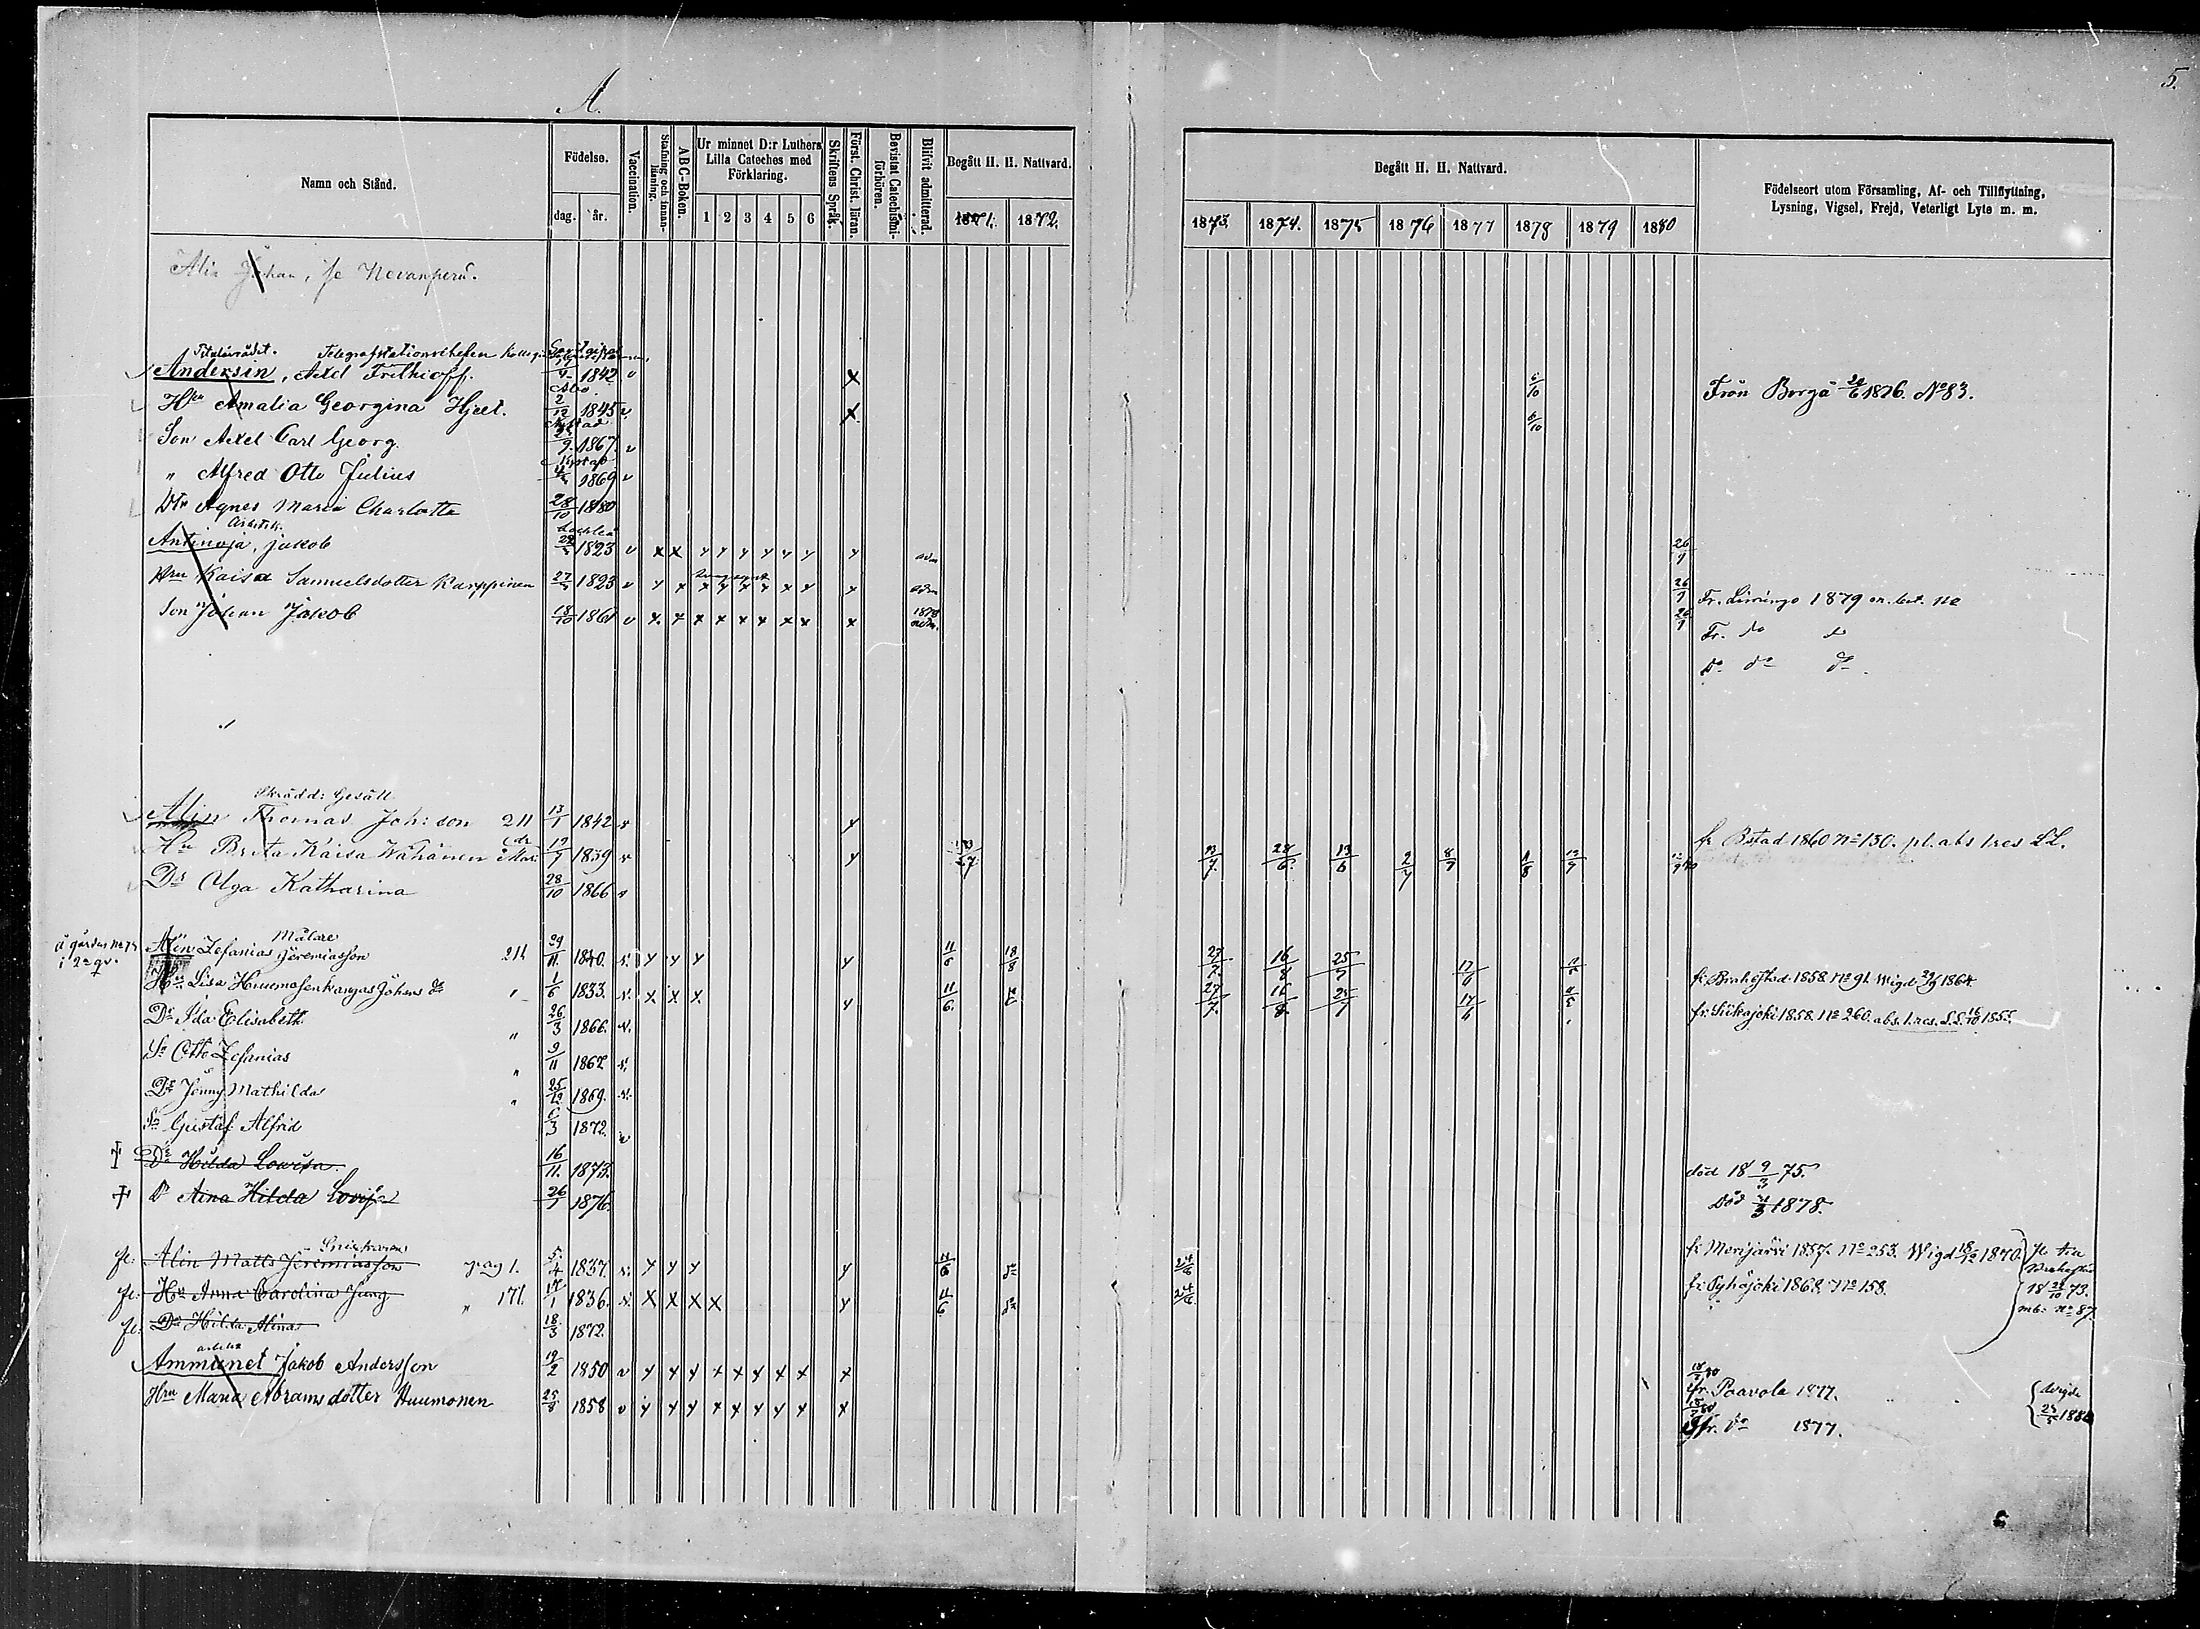 5.
A.
Namn och Stånd.
Födelse.
dag. år.
Vaccination.
Stafning och innanläsning.
ABC-Boken.
Ur minnet D:r Luthers Lilla Cateches med Förklaring.
1 2 3 4 5 6
Skriftens Språk.
Först. Christ. läran.
Bevistat Catechismiförhören.
Blifvit admitterad.
Begått H. H. Nattvard.
1871. 1872.
Begått H. H. Nattvard.
1873. 1874. 1875 1876 1877 1878 1879 1880
Födelseort utom Församling, Af- och Tillflyttning,
Lysning, Vigsel, Frejd, Veterligt Lyte m. m.
Johan, se Nevanperä.
Titulärrådet. Telegrafstationschefen
Andersin, Axel Frithioff. 1842 v x 6/10 Från Borgå 1876. No 83.
Hu Amalia Georgina Hjelt. 2/12 1845 v x 6/10
Son Axel Carl Georg. 1867. v
" Alfred Otto Julius 1869 v
Dtr Agnes Maria Charlotta 28/10 1880
Arbetsk.
Antinoja, Jakob 1823 v x x y y y y y y y adm 26/9
Hru Kaisa Samuelsdotter Karppinen 1823 v y x x x x x x x x adm 26/9 Fr. Limingo 1879
Son Johan Jakob 18/10 1861 v x x x x x x x x x 1878 adm. 26/9 Fr. do do
do do do
Skrädd: Gesäll
Alin Thomas Joh:son 211 13/1 1842 v y fr Bstad 1860 No 130. pl. abs 1 res LL.
Hu Brita Kaisa 1839 v y 13/7. 28/6. 13/6 2/7 8/7 12/9
Dr Olga Katharina 28/10 1866 v
ä gården No 73
i 2a qv.
Målare
Alin Zefanias Jeremiasson 211 29/11. 1840. v. y y y y 11/6 18/8 27/7. 16/8 25/7 17/6 fr. Brahestad 1858. No 91. Wigd 1864.
Hu Lisa Johans dr " 1/6 1833. v. x x x y 11/6. 27/7. 16/8. 25/7 17/6 fr. Siikajoki 1858. No 260. abs. 1. res. L.L. 1855.
Dr Ida Elisabeth " 26/3 1866. v.
Sn Otto Zefanias " 9/11 1867 v.
Dr Jenny Mathilda " 25/12 1869. v.
Sn Gustaf Alfrid 6/3 1872. v
† Dr Hilda Lowisa. 16/11. 1873. död 18 9/3 75.
† Dr Aina Hilda Lovisa 26/1 1876. Död 1878.
Snickaren
fl. Alin Matts Jeremiasson pag 1. 5/4 1837. v. y y y y 11/6 do 24/6 fr Merijärvi 1857. No 253. Wigd 18/12 1870.
fl. Hu Anna Carolina Jung " 171. 17/1 1836. v. x x x x y 11/6 do 24/6 fr. Pyhäjoki 1868. No 158.
fl till Brahestad 18 22/10 73. mb. No 87.
fl. Dr Hilda Alina 18/3 1872.
Ammunet Jakob Andersson 19/2 1850 v y y y x x y x x x fr. Paavola 1877.
Hru Maria Abrams dotter Huumonen 25/8 1858 v y y y x x y y x x fr. do 1877.
Wigde